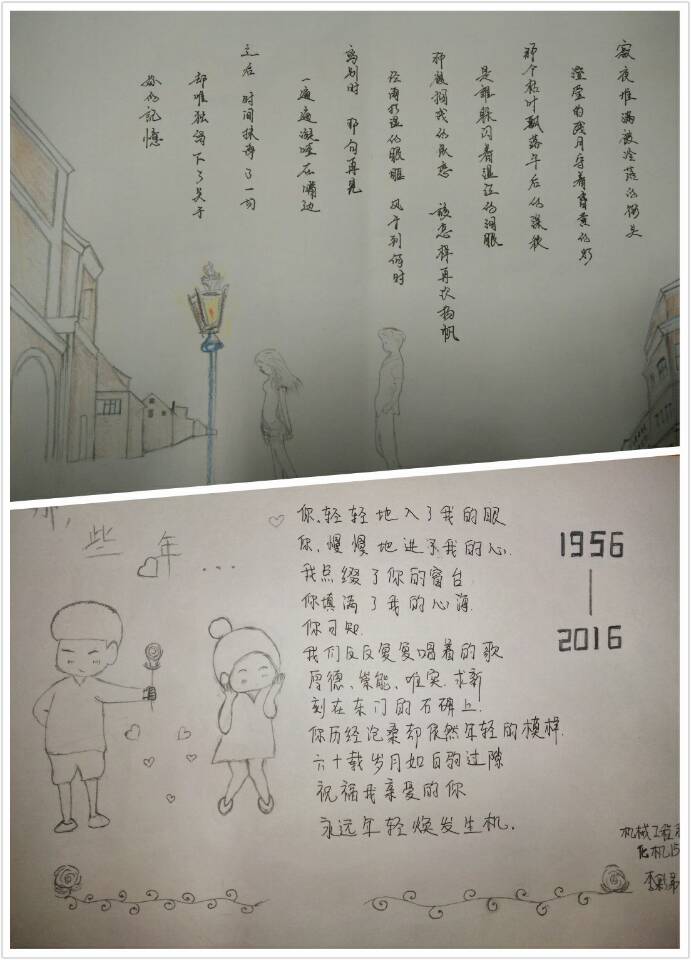 寂夜堆满被冷落的街头
澄莹的残月守着昏黄的灯
那个枯叶飘落午后的深秋
是谁躲闪着温江的泪眼
那被搁浅的风 该怎样再次扬帆
的眼眶 风干到何时
离别时 那句再见
一遍遍凝噎在嘴边
之后 时间抹净了一切
却唯独留下了关于
你的記憶
那,些年...
你,轻轻地入了我的眼
你,慢慢地进了我的心.
我点缀了你的窗台
你填满了我的心海
你可知
我们反反复复唱着的歌
厚德、崇能、唯实.求新
刻在东门的石碑上.
你历经沧桑却依然年轻的模样.
六十载岁月如白驹过隙
祝福我亲爱的你
永远年轻焕发生机.
1956
|
2016
机械工程系
化机15